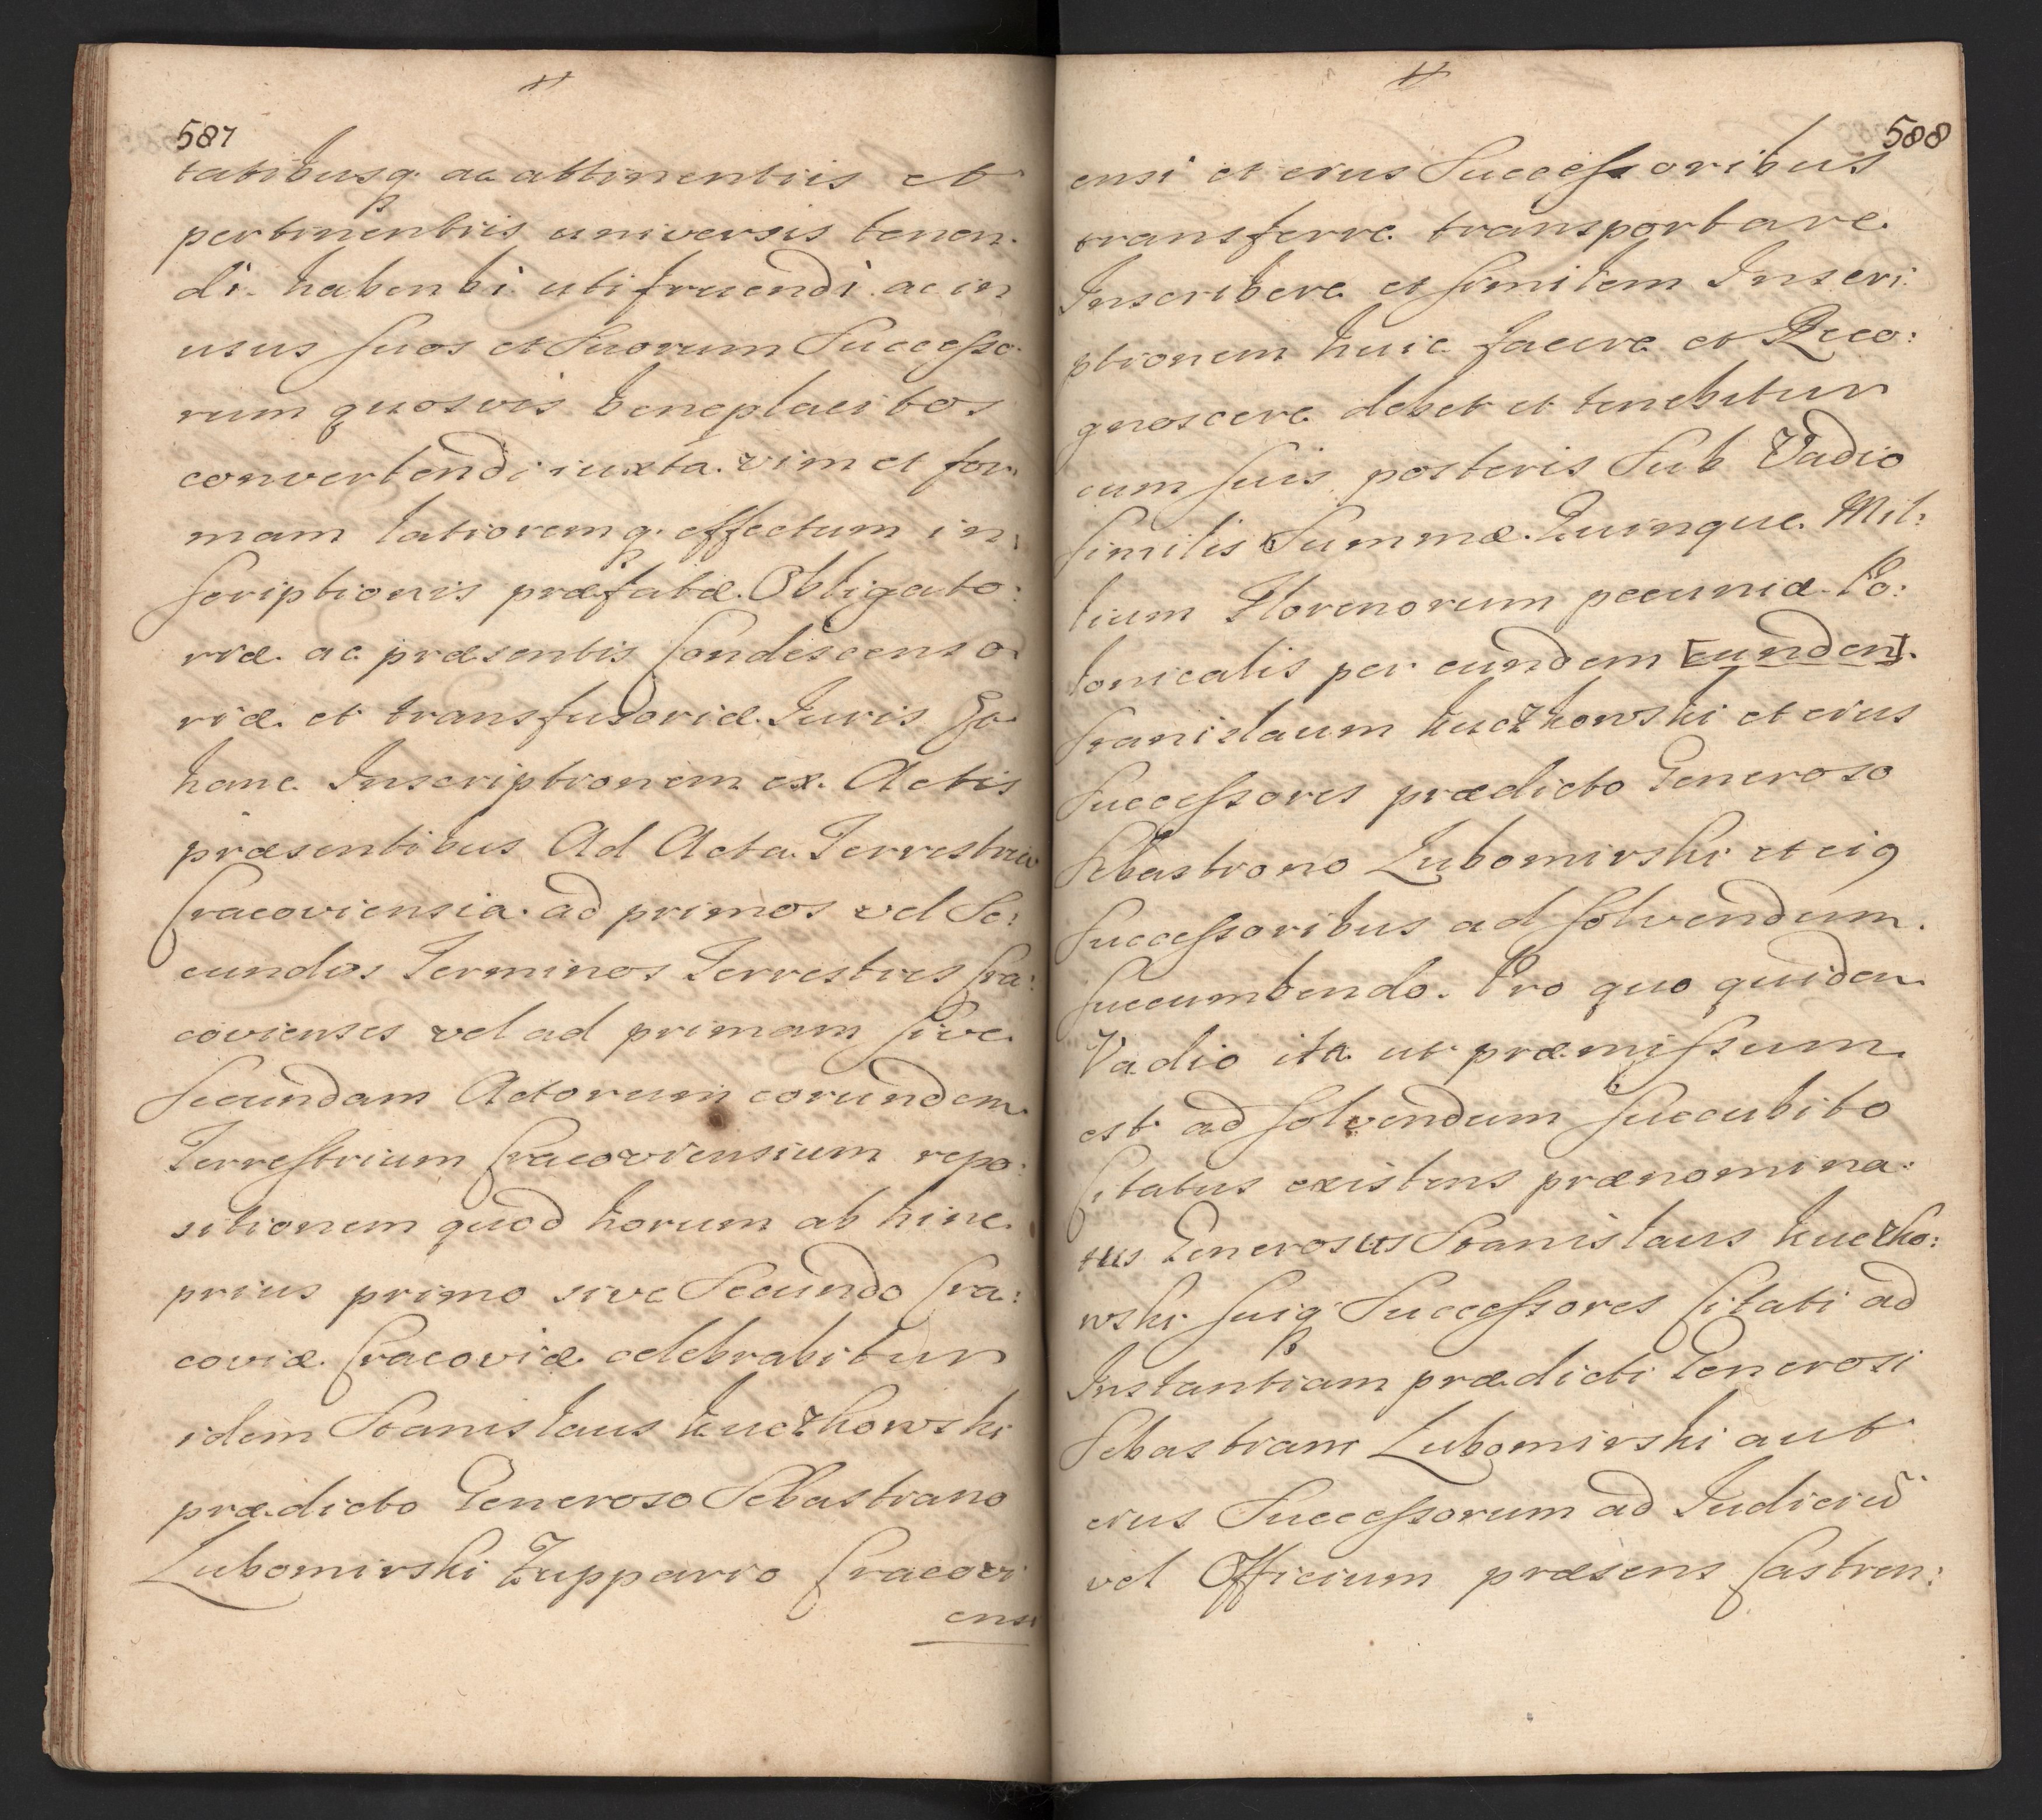 587
tatibusq. ac attinentiis et
pertinentiis universis tenen.
di. habenbi utifruendi ac in
usus suos et Suorum Successo.
rum quosvis beneplacitos
convertendi iuxta vim et for.
mam latioremq. effectum in,
scriptionis præfatæ Obligato:
riæ ac præsentis Condescenso
riæ et transfusoriæ Juris Et
hanc Inscriptionem ex Actis
præsentibus Ad Acta Terrestria
Cracoviensia ad primos vel Se:
cundos Terminos Terrestres Cra:
covienses vel ad primam sive
Secundam Actorum eorundem
Terrestrium Cracoviensium repo:
sitionem quod horum ab hinc
prius primo sive Secundo Cra:
coviæ Cracoviæ celebrabitur
idem Stanislaus Kuczkowski
prædicto Generoso Sebastiano
Lubomirski Zuppario Cracovi
ensi
588
ensi et eius Successoribus
transferre transportare
Inscribere et similem Inscri:
ptionem huic facere et Reco:
gnoscere debet et tenebitur
cum suis posteris Sub Vadio
similis Summæ Quinque Mil:
lium Florenorum pecuniæ Po:
lonicalis per eundem [eunden].
Stanislaum Kuczkowski et eius
Successores prædicto Generoso
Sebastiano Lubomirski et ei9
Successoribus ad solvendum.
Succumbendo. Pro quo quidem
Vadio ita ut præmissum
est ad solvendum succubito
Citatus existens prænomina:
tus Generosus Stanislaus Kuczko:
wski suiq. Successores Citati ad
Instantiam prædicti Generosi
Sebastiani Lubomirski aut
eius Successorum ad Iudiciũ
vel Officium præsens Castren: